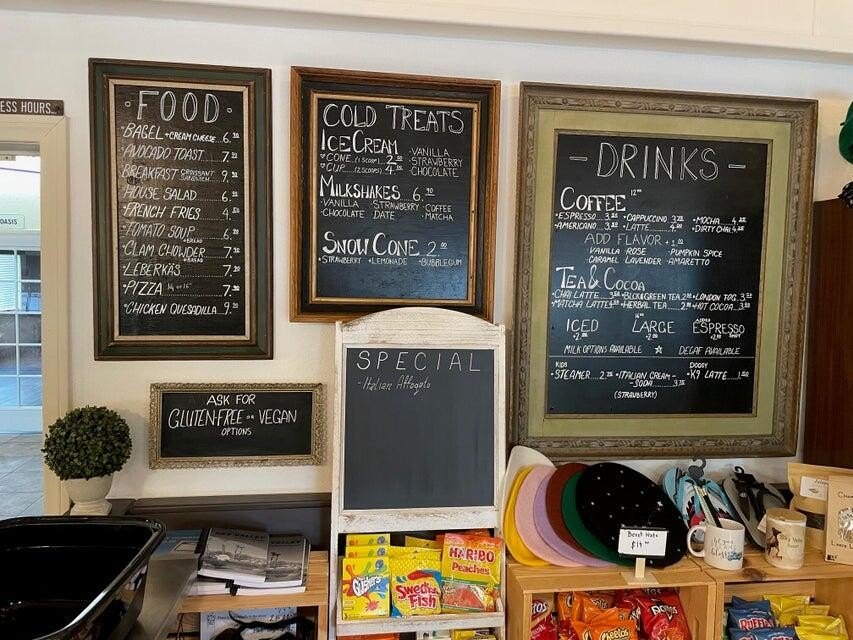 ESS HOURS...
OASIS
FOOD
BAGEL + CREAM CHEESE...6.
AVOCADO TOAST......7.
BREAKFAST CROISSANT SANDWICH...9.
HOUSE SALAD......6.
FRENCH FRIES......4.
TOMATO SOUP +BREAD...6.
CLAM CHOWDER +BREAD...7.
LEBERKÄS......7.
PIZZA
CHICKEN QUESADILLA...9.
COLD TREATS
ICE CREAM
CONE...(1 SCOOP) 2.
CUP...(2 SCOOPS) 4.
·VANILLA
·STRAWBERRY
·CHOCOLATE
MILKSHAKES 6.90
·VANILLA ·STRAWBERRY ·COFFEE
·CHOCOLATE ·DATE ·MATCHA
SNOW CONE 2.
·STRAWBERRY ·LEMONADE ·BUBBLEGUM
- DRINKS -
COFFEE 12oz
·ESPRESSO...3. ·CAPPUCCINO 3. ·MOCHA...4.
·AMERICANO...3. ·LATTE.......4. ·DIRTY CHAI 4.
ADD FLAVOR + 1.
VANILLA ·ROSE ·PUMPKIN SPICE
CARAMEL ·LAVENDER ·AMARETTO
TEA & COCOA
·CHAI LATTE...3. ·BLCK&GREEN TEA 2. ·LONDON FOG 3.
·MATCHA LATTE 4. ·HERBAL TEA 2. ·HOT COCOA 3.
ICED LARGE ADDED ESPRESSO
MILK OPTIONS AVAILABLE ☆ DECAF AVAILABLE
KIDS DOGGY
·STEAMER...2. ·ITALIAN CREAM- ·K9 LATTE...1.
-SODA...3.
(STRAWBERRY)
ASK FOR
GLUTEN-FREE OR VEGAN
OPTIONS
SPECIAL
- Italian Affogato
Gushers
SWEDISH Fish
HARIBO
Peaches
Beret Hats
$14
Cheetos
RUFFLES